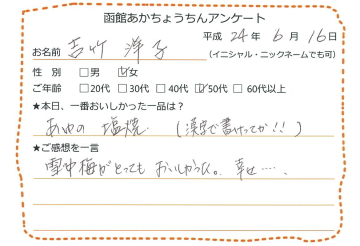 函館あかちょうちんアンケート
平成 24年 6月 16日
お名前 吉竹 洋子 (イニシャル・ニックネームでも可)
性 別 □男 ☑女
ご年齢 □20代 □30代 □40代 ☑50代 □60代以上
★本日、一番おいしかった一品は?
あゆの 塩焼 (漢字で書けってか!!)
★ご感想を一言
雪中梅がとっても おいしかった。 幸せ…‥.